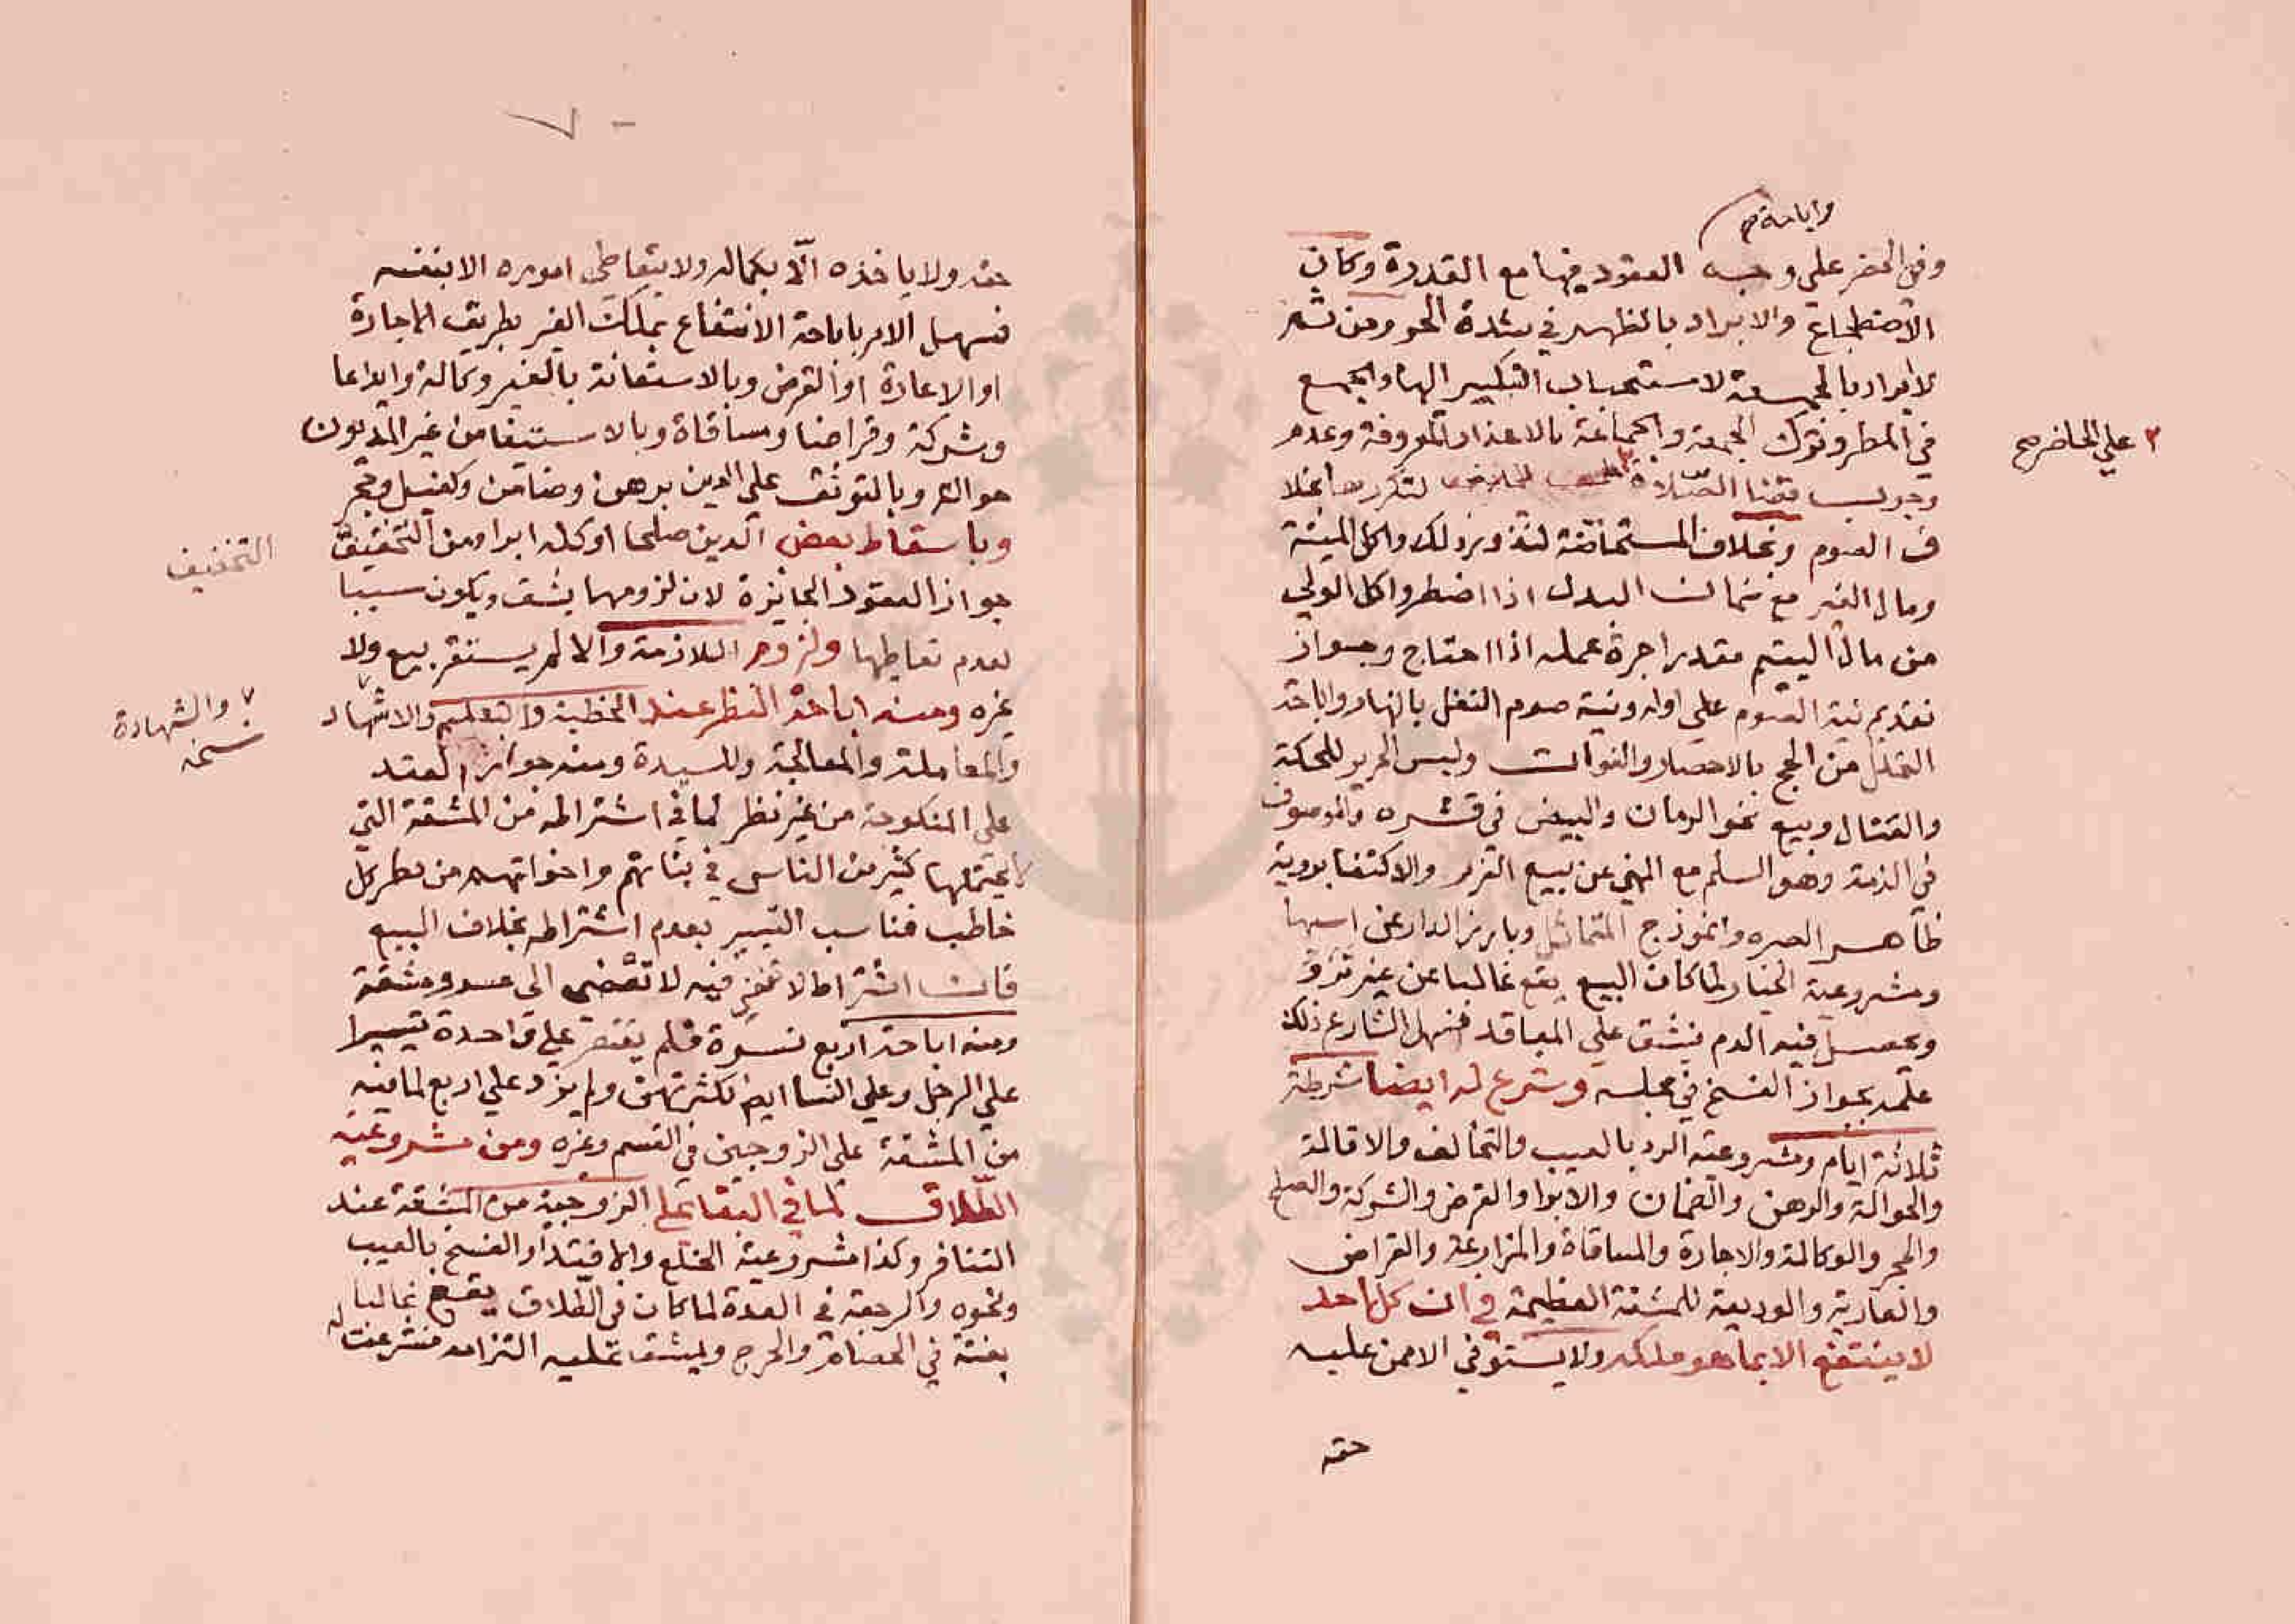 واباحة صح
وفي الحضر علي وجه القعود فيها مع القدرة وكان
الاضطجاع والابراد بالظهر في شدة الحر ومن ثم
لا ابراد بالجمعة لاستحباب التبكير اليها والجمع
في المطر وترك الجمعة والجماعة بالاعذار المعروفة وعدم
٢ علي الحائض صح
وجوب قضا الصلاة لتكررها بخلا
ف الصوم وبخلاف المستحاضة لندور ذلك واكل الميتة
ومال الغير مع ضمان البدل اذا اضطر واكل الولي
من مال اليتيم بقدر اجرة عمله اذا احتاج وجواز
تقديم نية الصوم علي اوله ونية صوم النفل بالنهار واباحة
التحلل من الحج بالاحصار والفوات ولبس الحرير للحكة
والقتال وبيع نحو الرمان والبيض في قشره والموصوف
في الذمة وهو السلم مع النهي عن بيع الغرر والاكتفا بروية
ظاهر الصبره وانموذج المتماثل وبارز الدار عن اسها
ومشروعية الخيار لما كان البيع يقع غالبا عن غير تروّ
ويحصل فيه الندم فيشق علي العاقد فسهل الشارع ذلك
عليه بجواز الفسخ في مجلسه وشرع له ايضا شرطه
ثلاثة ايام ومشروعية الرد بالعيب والتحالف والاقالة
والحوالة والرهن والضمان والابرا والقرض والشركة والصلح
والحجر والوكالة والاجارة والمساقاة والمزارعة والقراض
والعارية والوديعة للمشقة العظيمة في ان كل احد
لا ينتفع الا بما هو ملكه ولا يستوفي الا ممن عليه
حقه
حقه ولا ياخذه الّا بكماله ولا يتعاطى اموره الا بنفسه
فسهل الامر باباحة الانتفاع بملك الغير بطريق الاجارة
او الاعارة او القرض وبالاستعانة بالغير وكالة وايداعا
وشركة وقراضا ومساقاة وبالاستيفا من غير المديون
حوالة وبالتوثق علي الدين برهن وضامن وكفيل وحجر
وباسقاط بعض الدين صلحا او كله ابرا ومن التخفيف
التخفيف
جواز العقود الجائزة لان لزومها يشق ويكون سببا
لعدم تعاطيها ولزوم اللازمة والا لم يستقر بيع ولا
غيره ومنه اباحة النظر عند الخطبة والتعليم والاشهاد
٧ والشهادة نسخه
والمعاملة والمعالجة وللسيدة ومنه جواز العقد
علي المنكوحة من غير نظر لما في اشتراطه من المشقة التي
لا يحتملها كثير من الناس في بناتهم واخواتهم من نظر كل
خاطب فناسب التيسير بعدم اشتراطه بخلاف البيع
فان اشتراطه فيه لا تفضي الى عسر ومشقة
ومنه اباحة اربع نسوة فلم يقتصر علي واحدة تيسيرا
علي الرجل وعلي النسا ايضا لكثرتهن ولم يزد علي اربع لما فيه
من المشقة علي الزوجين في القسم وغيره ومن مشروعية
الطلاق لما في البقا علي الزوجية من المشقة عند
التنافر وكذا مشروعية الخلع والافتدا والفسخ بالعيب
ونحوه والرجعة في العدة لما كان في الطلاق يقع غالبا
بغتة في الخصام والحرج ويشق عليه التزامه فشرعت له